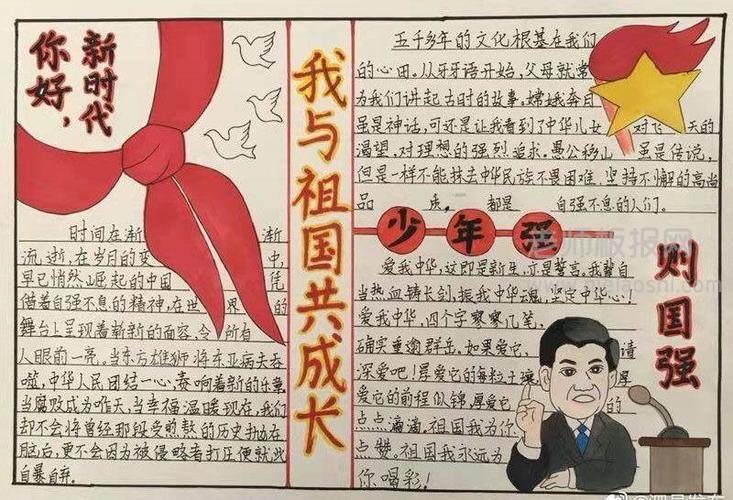 新时代
你好，
我与祖国共成长
五千多年的文化根基在我们
的心田。从牙牙语开始，父母就常
为我们讲起古时的故事。嫦娥奔月
虽是神话，可还是让我看到了中华儿女 对飞 天的
渴望，对理想的强烈追求。愚公移山 虽是传说，
但是一样不能抹去中华民族不畏困难、坚持不懈的高尚
品 质， 都是 自强不息的人们。
少年强
则国强
时间在渐 渐
流逝，在岁月的变 中，
早已悄然崛起的中国 凭
借着自强不息的精神，在世 界 的
舞台上呈现着崭新的面容，令 所有
人眼前一亮。当东方雄狮将东亚病夫吞
噬，中华人民团结一心，奏响着新的乐章
当腐败成为昨天，当幸福温暖现在，我们
却不会将曾经那段受煎熬的历史抛在
脑后，更不会因为被侵略者打压便就此
自暴自弃。
爱我中华，这即是新生，亦是誓言。我辈自
当热血铸长剑，振我中华魂，坚定中华心！
爱我中华，四个字寥寥几笔，
确实重逾群岳。如果爱它， 请
深爱吧！厚爱它的每粒土壤， 厚
爱它的前程似锦，厚爱它 的
点点滴滴，祖国我为你
点赞，祖国我永远为
你喝彩！
老师板报网